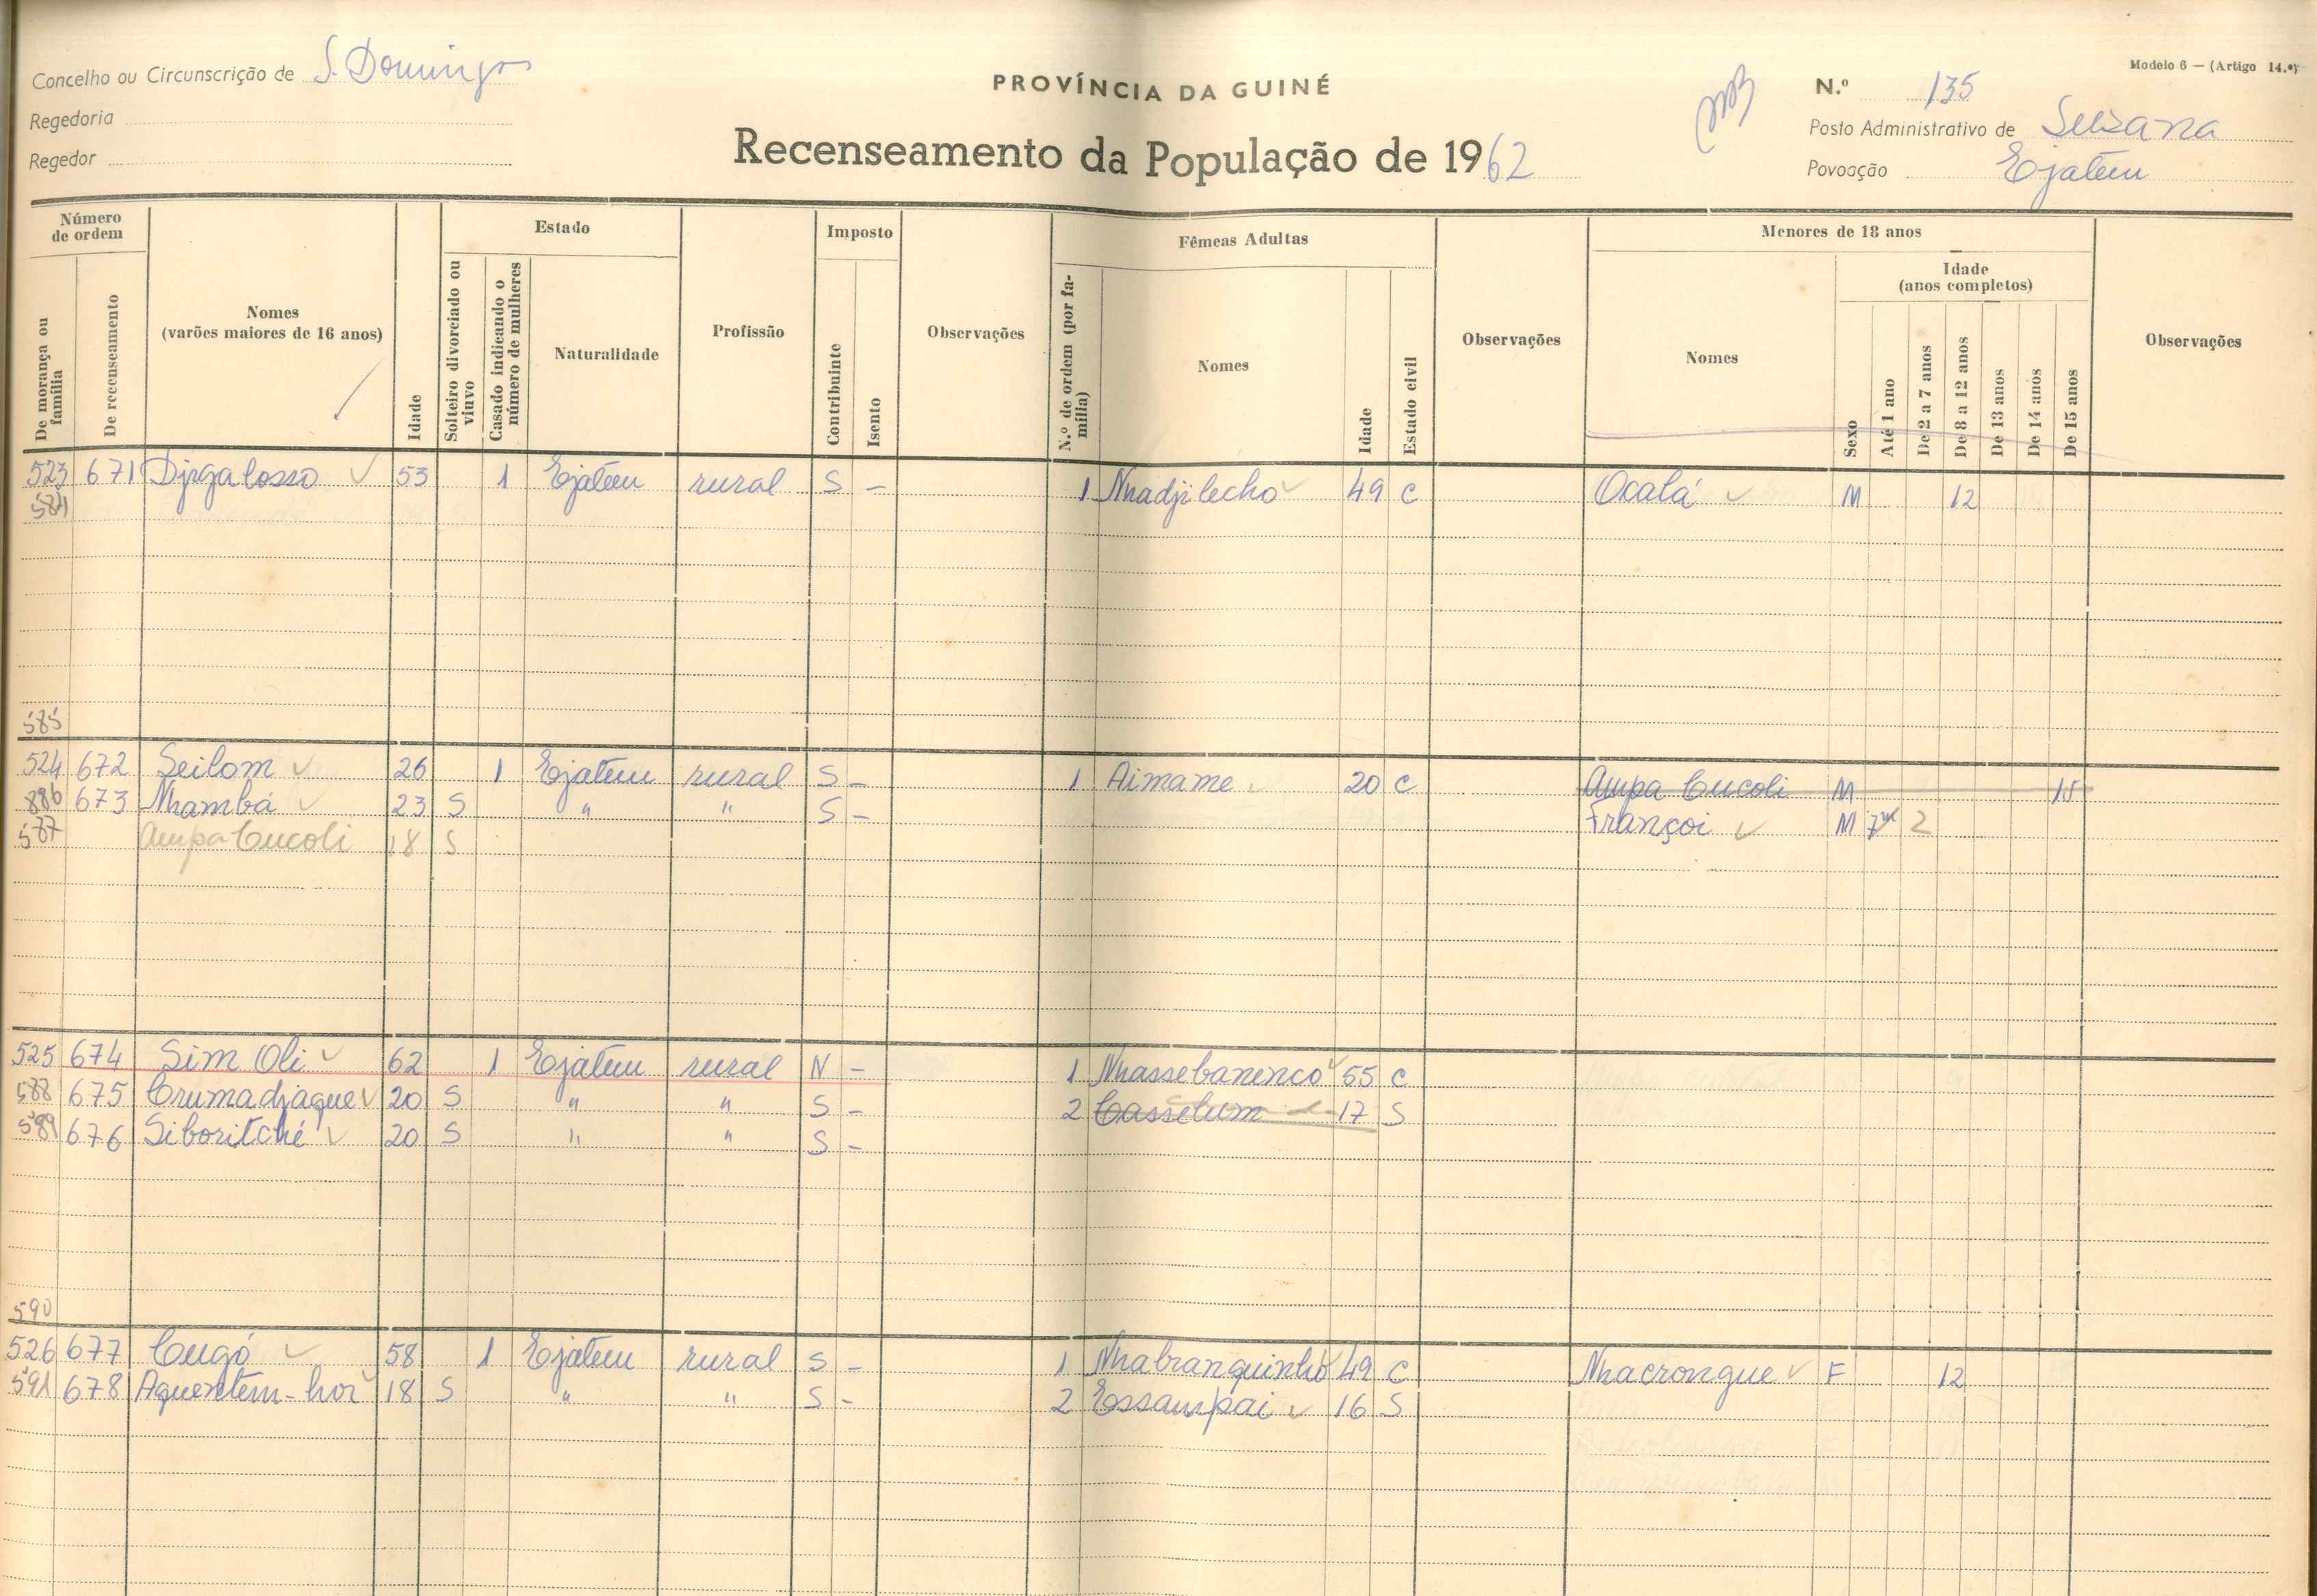 Concelho ou Circunscrição de S. Domingos
Regedoria
Regedor
PROVÍNCIA DA GUINÉ
Recenseamento da População de 1962
Modelo 6 — (Artigo 14.º)
N.º 135
Posto Administrativo de Susana
Povoação Ejatem
Número de ordem
De morança ou família
De recenseamento
Nomes
(varões maiores de 16 anos)
Idade
Estado
Solteiro divorciado ou viuvo
Casado indicando o número de mulheres
Naturalidade
Profissão
Imposto
Contribuinte
Isento
Observações
Fêmeas Adultas
N.º de ordem (por família)
Nomes
Idade
Estado civil
Observações
Menores de 18 anos
Nomes
Sexo
Idade
(anos completos)
Até 1 ano
De 2 a 7 anos
De 8 a 12 anos
De 13 anos
De 14 anos
De 15 anos
Observações
523 671 Djigalosso 53 1 Ejatem rural S - 1 Nhadjilecho 49 C Ocalá M 12
584
585
524 672 Seilom 26 1 Ejatem rural S - 1 Aimame 20 C Ampa Cucoli M 15
886 673 Nhambá 23 S " " S - Françoi M 7m 2
587 Ampa Cucoli 18 S
525 674 Sim Oli 62 1 Ejatem rural N - 1 Nhassebanenco 55 C
588 675 Crumadjaque 20 S " " S - 2 Casselum 17 S
589 676 Siboritché 20 S " " S -
590
526 677 Cugó 58 1 Ejatem rural S - 1 Nhabranquinho 49 C Nhacrongue F 12
591 678 Aquentem-hoi 18 S " " S - 2 Essampai 16 S